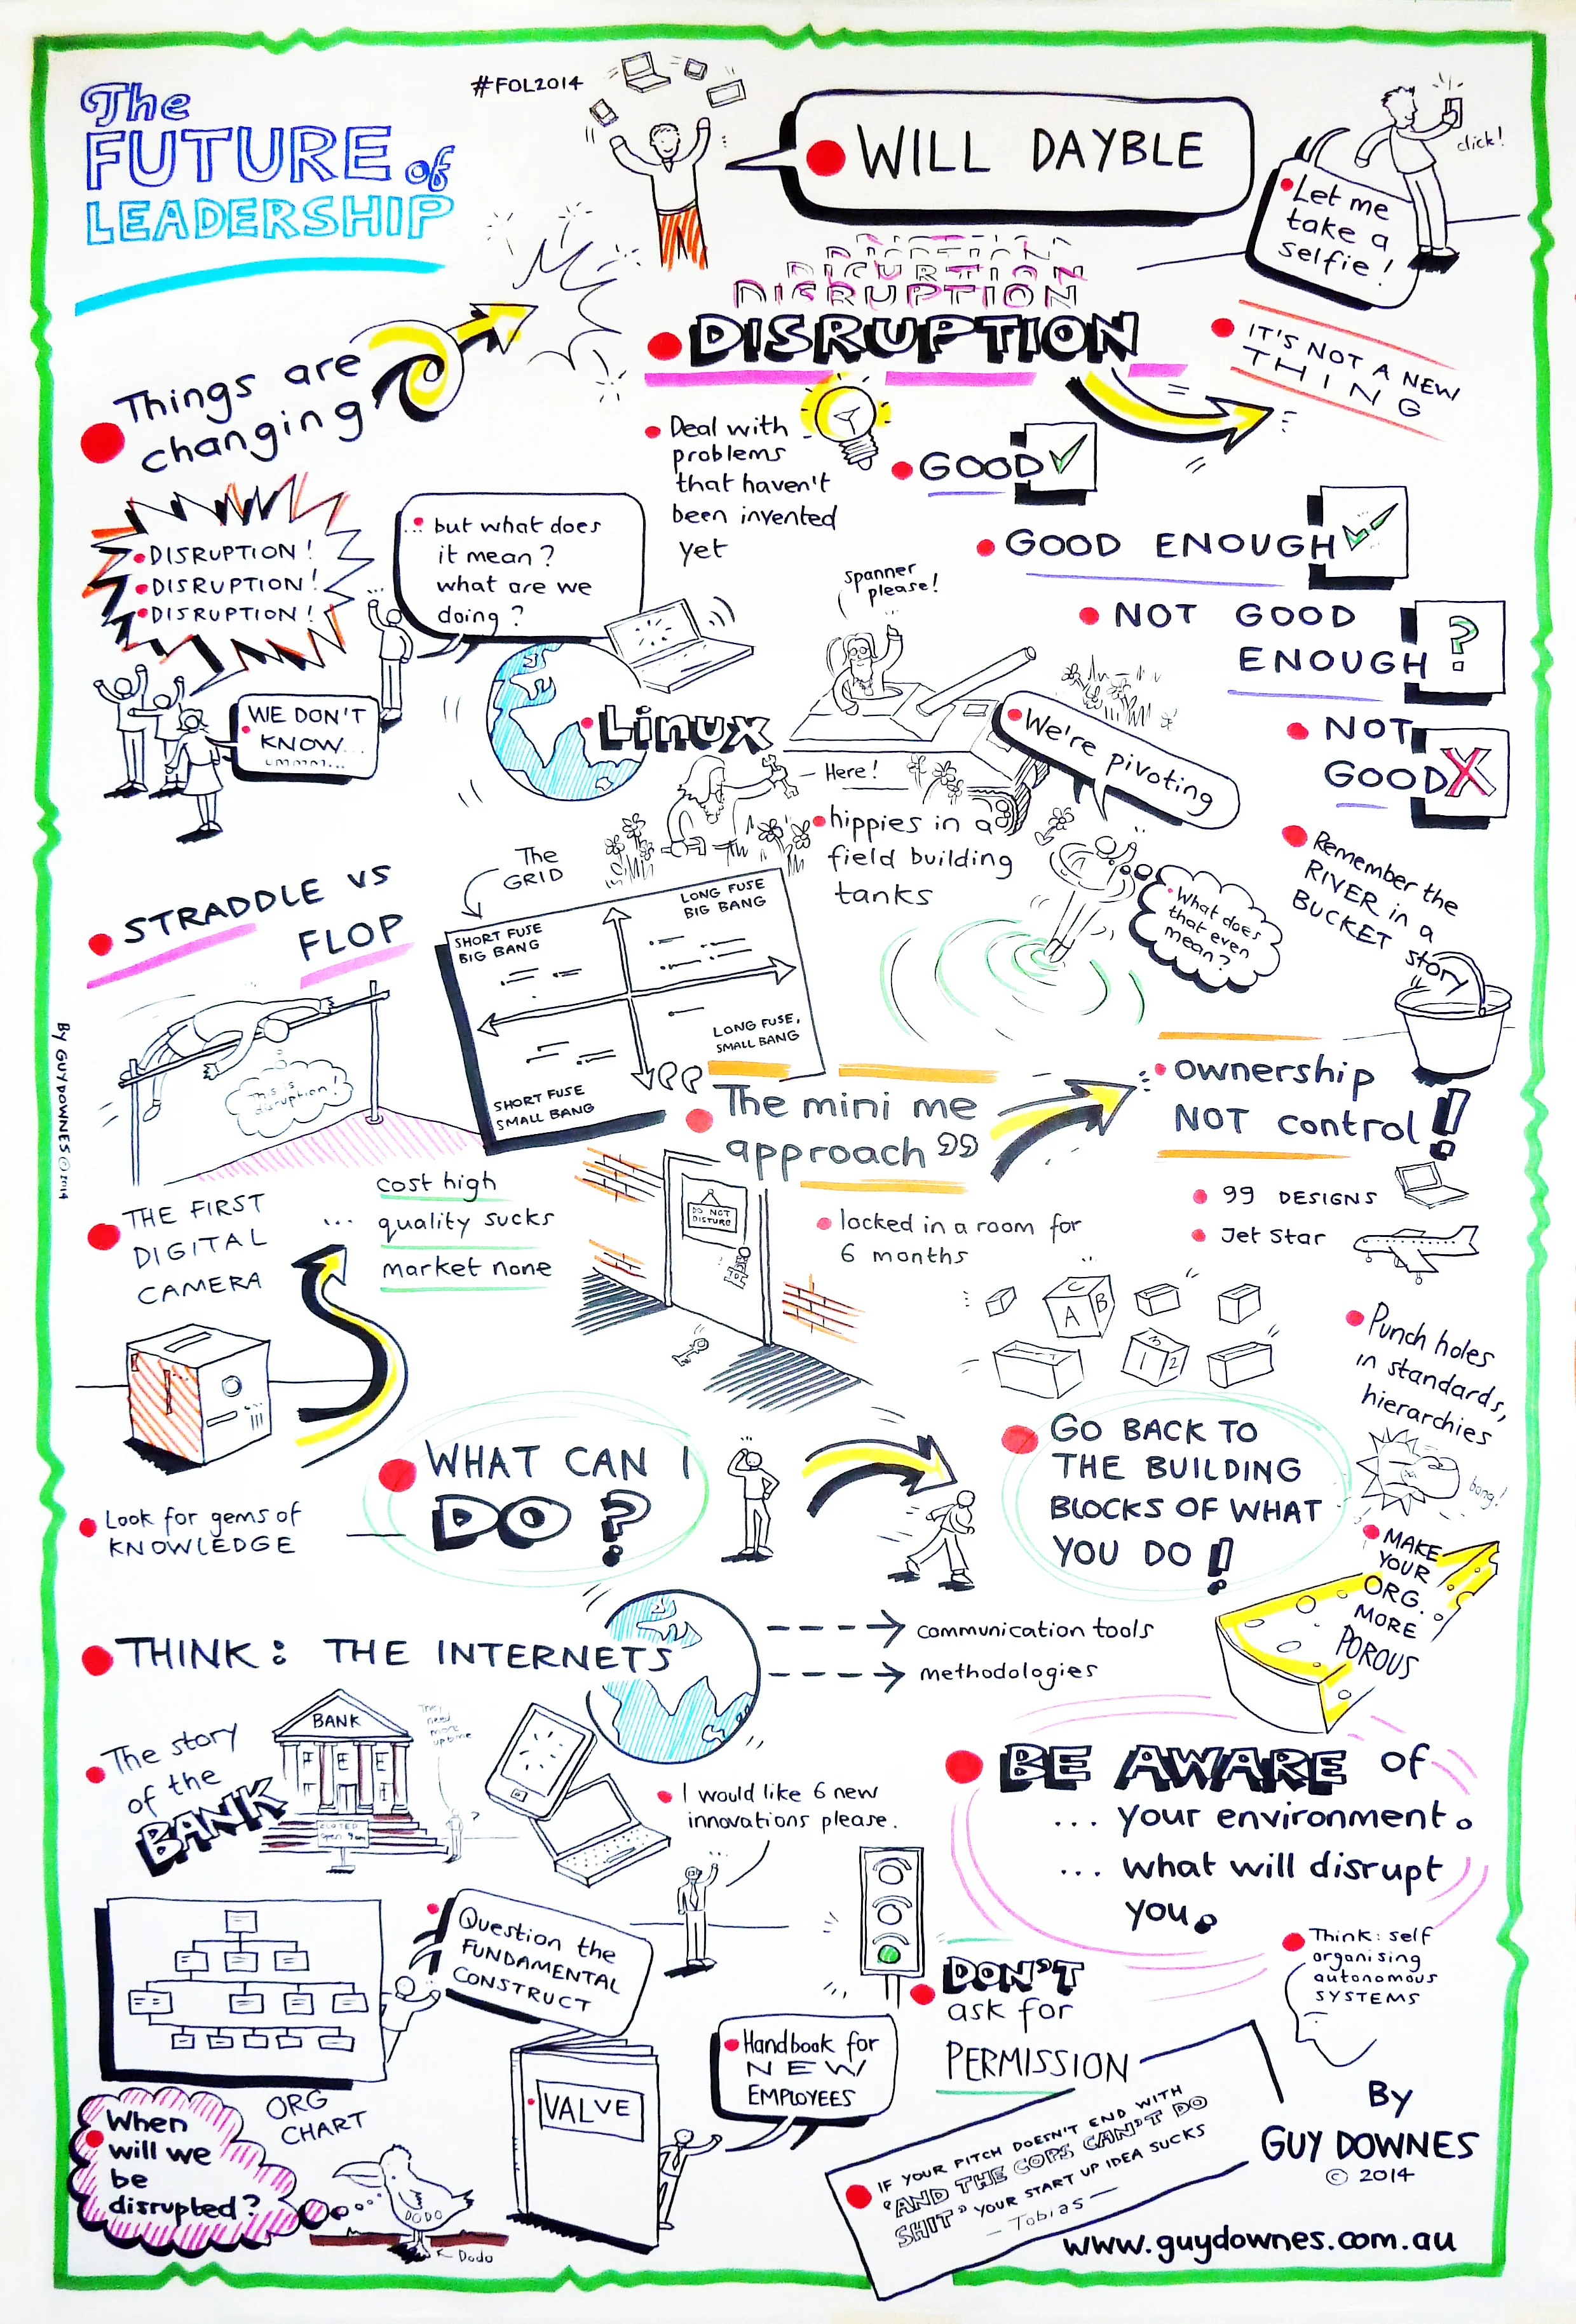 The
FUTURE of
LEADERSHIP
#FOL2014
WILL DAYBLE
click!
Let me
take a
selfie!
DISRUPTION
DISRUPTION
IT'S NOT A NEW
THING
Things are
changing
DISRUPTION!
DISRUPTION!
DISRUPTION!
... but what does
it mean?
what are we
doing?
WE DON'T
KNOW...
UMMMM...
Deal with
problems
that haven't
been invented
yet
GOOD
GOOD ENOUGH
NOT GOOD
ENOUGH
?
NOT
GOOD
spanner
please!
Linux
Here!
hippies in a
field building
tanks
We're pivoting
What does
that even
mean?
Remember the
RIVER in a
BUCKET story
STRADDLE VS
FLOP
This is
disruption!
The
GRID
SHORT FUSE
BIG BANG
LONG FUSE
BIG BANG
LONG FUSE,
SMALL BANG
SHORT FUSE
SMALL BANG
"The mini me
approach"
ownership
NOT control!
99 DESIGNS
Jet Star
THE FIRST
DIGITAL
CAMERA
... cost high
quality sucks
market none
DO NOT
DISTURB
locked in a room for
6 months
A B
3
1 2
Punch holes
in standards,
hierarchies
bang!
WHAT CAN I
DO?
GO BACK TO
THE BUILDING
BLOCKS OF WHAT
YOU DO!
Look for gems of
KNOWLEDGE
MAKE
YOUR
ORG.
MORE
POROUS
THINK: THE INTERNETS
communication tools
methodologies
The story
of the
BANK
BANK
FEE
CLOSED
open 9am
They
need
more
uptime
?
I would like 6 new
innovations please.
BE AWARE of
... your environment.
... what will disrupt
you.
Question the
FUNDAMENTAL
CONSTRUCT
ORG
CHART
DON'T
ask for
PERMISSION
Think: self
organising
autonomous
SYSTEMS
VALVE
Handbook for
NEW
EMPLOYEES
When
will we
be
disrupted?
DODO
Dodo
IF YOUR PITCH DOESN'T END WITH
"AND THE COPS CAN'T DO
SHIT" YOUR START UP IDEA SUCKS
- Tobias -
By
GUY DOWNES
© 2014
www.guydownes.com.au
By GUY DOWNES © 2014